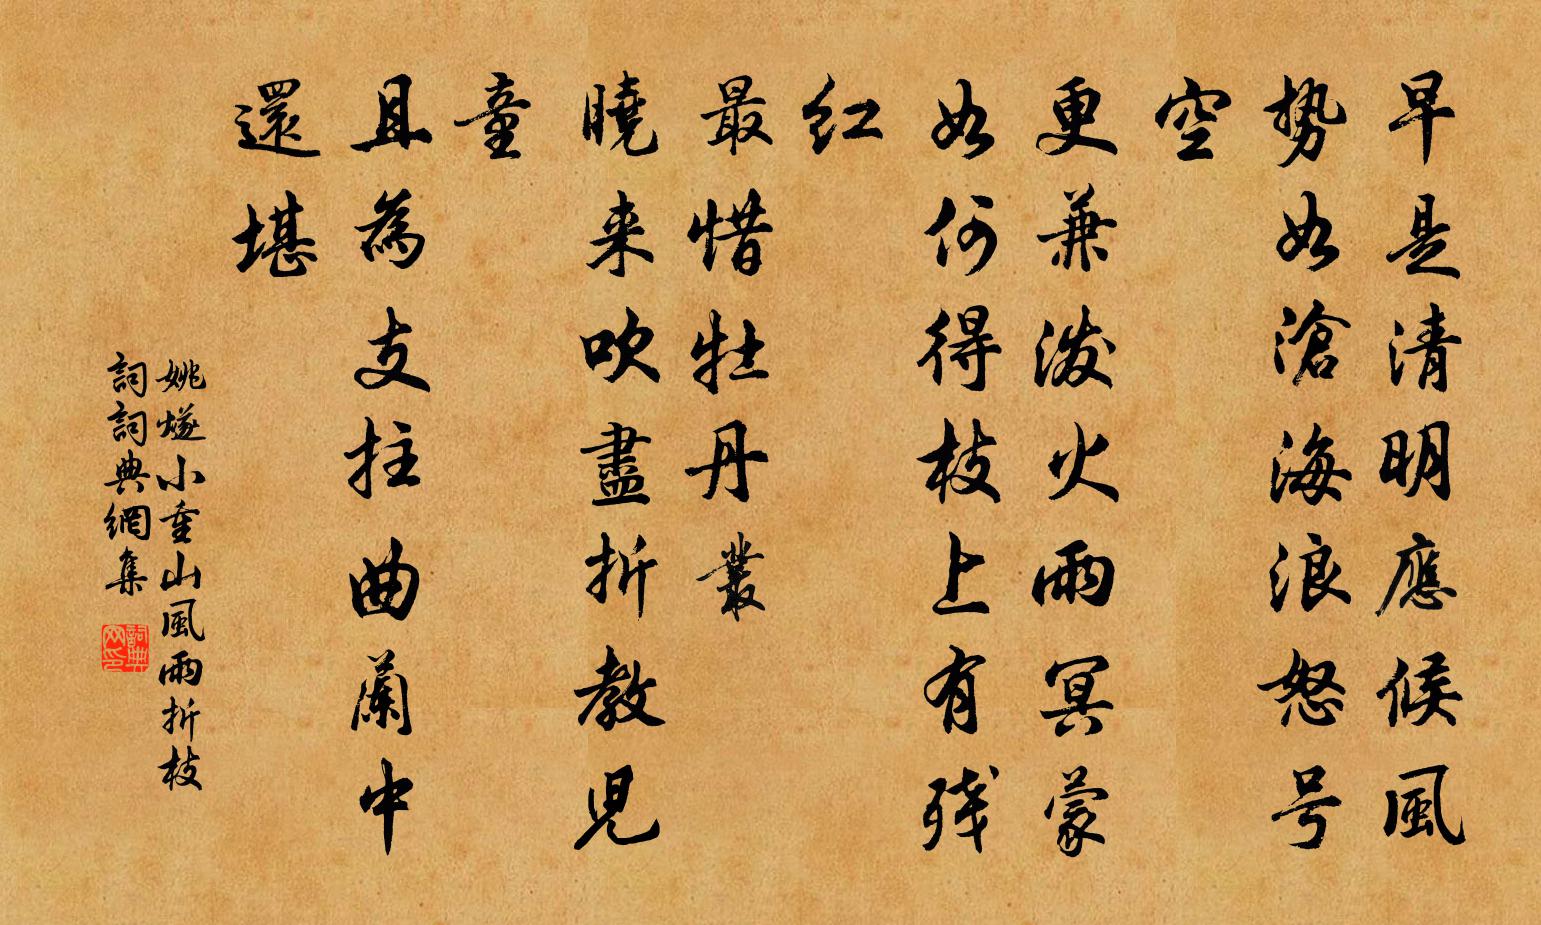 早是清明應候風
勢如滄海浪怒号
空
更兼潑火雨冥蒙
如何得枝上有残
紅
最惜牡丹叢
曉来吹盡折教児
童
且為支拄曲闌中
還堪
姚燧小重山風雨折枝
詞詞典網集
詞典網印